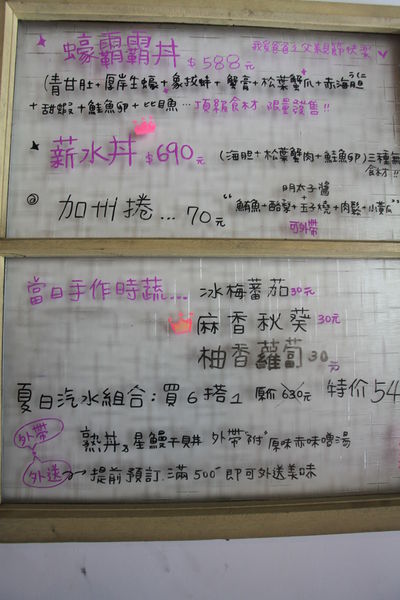 蠔霸霸丼 $588元
(青甘肚+厚岸生蠔+象拔蚌+蟹膏+松葉蟹爪+赤海胆
+甜蝦+鮭魚卵+比目魚…頂級食材 限量發售!!
薪水丼 $690元 (海胆+松葉蟹肉+鮭魚卵)三種
食材!!
@加州捲…70元
明太子醬
+
"鮪魚+酪梨+玉子燒+肉鬆+小黃瓜"
可外帶
當日手作時蔬… 冰梅蕃茄30元
麻香秋葵 30元
柚香蘿蔔 30元
夏日汽水組合:買6搭1 原价 630元 特价54
外帶
熟丼 星鰻干貝丼 外帶"附"原味赤味噌湯
外送 提前預訂.滿500-即可外送美味